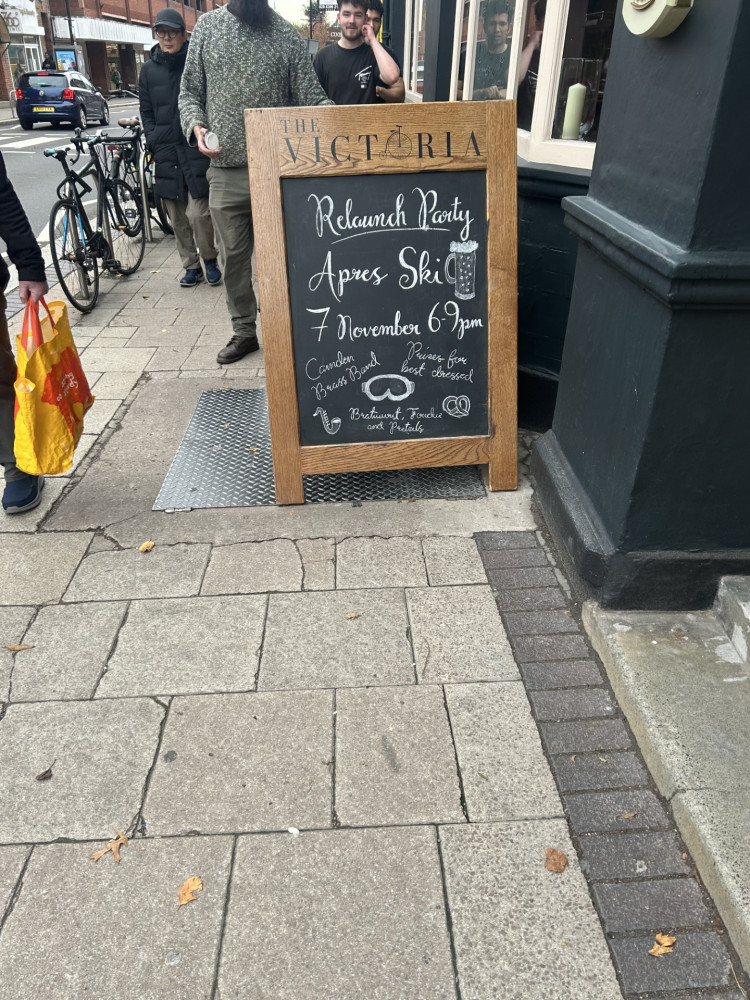 THE
VICTORIA
Relaunch Party
Apres Ski
7 November 6-9pm
Camden
Brass Band
Prizes for
best dressed
Bratwurst, Fondue
and Pretzels